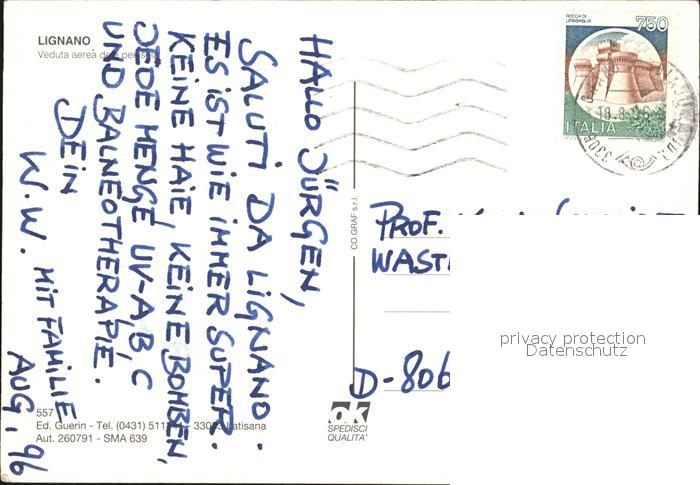 LIGNANO
Veduta aerea
HALLO JÜRGEN,
SALUTI DA LIGNANO.
ES IST WIE IMMER SUPER.
KEINE HAIE, KEINE BOMBEN,
JEDE MENGE UV-A,B,C
UND BALNEOTHERAPIE.
DEIN
W.W. MIT FAMILIE
AUG, 96
557
Ed. Guerin - Tel. (0431) Latisana
Aut. 260791 - SMA 639
CO.GRAF s.r.l.
ok
SPEDISCI
QUALITA'
ROCCA DI
URBISAGLIA
750
ITALIA
18.8.96
PROF.
D-806
privacy protection
Datenschutz